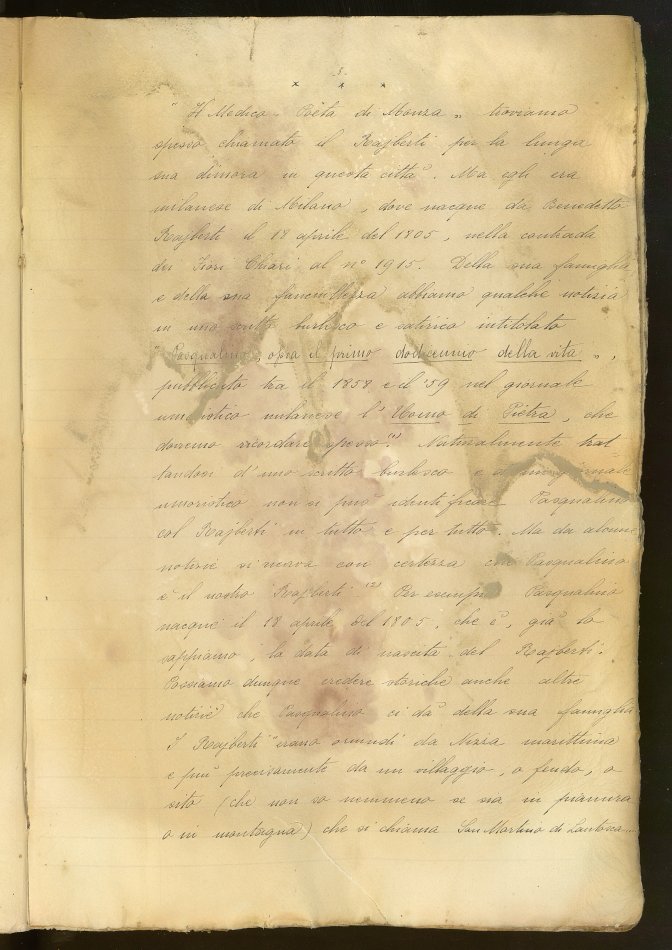 5.
x x x
" Il Medico - Poeta di Monza „ troviamo
spesso chiamato il Rajberti per la lunga
sua dimora in questa città. Ma egli era
milanese di Milano, dove nacque da Benedetto
Rajberti il 18 aprile del 1805, nella contrada
dei Fiori Chiari al n° 1915. Della sua famiglia
e della sua fanciullezza abbiamo qualche notizia
in uno scritto burlesco e satirico intitolato
" Pasqualino, ossia il primo dodicennio della vita „,
pubblicato tra il 1858 e il '59 nel giornale
umoristico milanese l' Uomo di Pietra, che
dovremo ricordare spesso.(1) Naturalmente trat
tandosi d'uno scritto burlesco e giornale
umoristico non si può identificare Pasqualino
col Rajberti in tutto e per tutto. Ma da alcune
notizie si ricava con certezza che Pasqualino
è il nostro Rajberti (2) Per esempio Pasqualino
nacque il 18 aprile del 1805, che è, già lo
sappiamo, la data di nascita del Rajberti.
Possiamo dunque credere storiche anche altre
notizie che Pasqualino ci dà della sua famiglia
I Rajberti erano oriundi da Nizza marittima
e più precisamente da un villaggio, o feudo, o
sito (che non so nemmeno se sia in pianura
o in montagna) che si chiama San Martino di Lantosca...